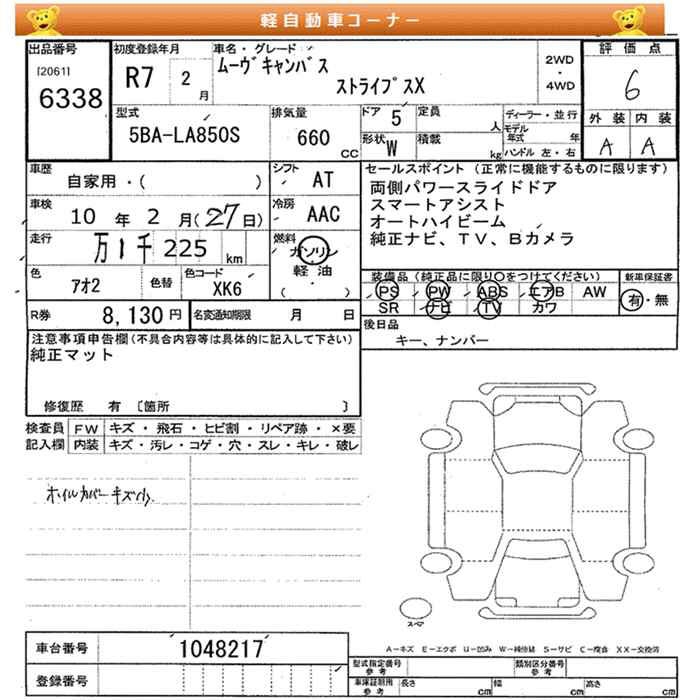 軽自動車コーナー
出品番号
[2061]
6338
初度登録年月
R7 2 月
車名・グレード
ムーヴキャンバス
ストライプスX
2WD
・
4WD
評価点
6
型式
5BA-LA850S
排気量
660 CC
ドア 5
定員 人
形状 W
積載 kg
ディーラー・並行
モデル年式 年
ハンドル 左・右
外装 内装
A A
車歴
自家用・( )
シフト AT
車検
10 年 2 月(27日)
冷房 AAC
走行
万1千225 km
燃料
ガソリン
・
軽油
( ・ )
色
アオ2
色替
色コード
XK6
セールスポイント(正常に機能するものに限ります)
両側パワースライドドア
スマートアシスト
オートハイビーム
純正ナビ、TV、Bカメラ
装備品(純正品に限り○をつけてください)
PS PW ABS エアB AW
SR ナビ TV カワ
新車保証書
有・無
R券 8,130円
名変通知期限 月 日
後日品
キー、ナンバー
注意事項申告欄(不具合内容等は具体的に記入して下さい)
純正マット
修復歴 有 〔箇所 〕
検査員記入欄
FW キズ・飛石・ヒビ割・リペア跡・×要
内装 キズ・汚レ・コゲ・穴・スレ・キレ・破レ
ホイルカバーキズ小
スペア
A-キズ E-エクボ U-凹み W-補修跡 S-サビ C-腐食 XX-交換済
車台番号 1048217
登録番号
型式指定番号 参考
類別区分番号 参考
車庫証明用 参考 長さ cm 幅 cm 高さ cm